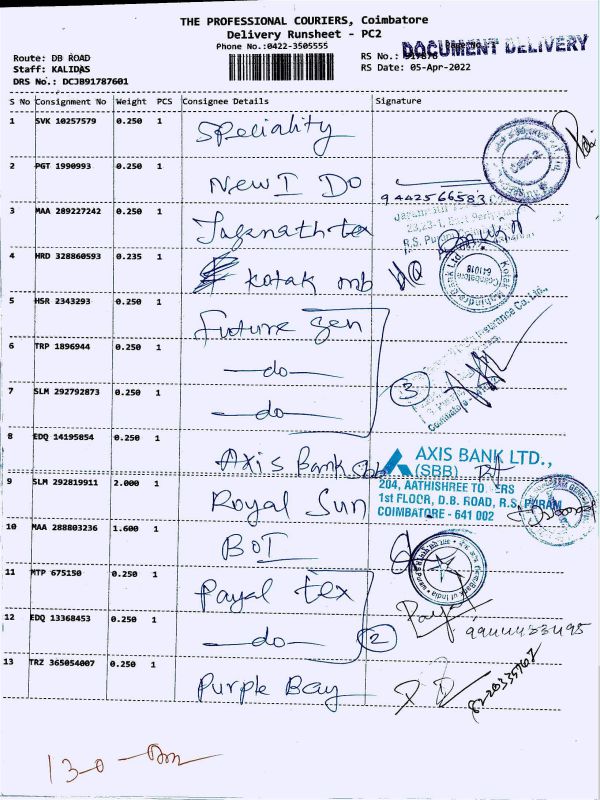 THE PROFESSIONAL COURIERS, Coimbatore
Delivery Runsheet - PC2
Phone No.:0422-3505555
DOCUMENT DELIVERY
Route: DB ROAD
Staff: KALIDAS
DRS No.: DCJ891787601
RS No.:
RS Date: 05-Apr-2022
S No Consignment No Weight PCS Consignee Details Signature
1 SVK 10257579 0.250 1 Speciality
2 PGT 1990993 0.250 1 New I Do 9442566583
3 MAA 289227242 0.250 1 Jaganath tex
4 HRD 328860593 0.235 1 Kotak mb
Kotak Mahindra Bank Ltd.
Coimbatore
641018
5 HSR 2343293 0.250 1 Future Gen
6 TRP 1896944 0.250 1 —do—
3
7 SLM 292792873 0.250 1 —do—
8 EDQ 14195854 0.250 1 Axis Bank Sbb
AXIS BANK LTD.,
(SBB)
204, AATHISHREE TO ERS
1st FLOOR, D.B. ROAD, R.S. PURAM
COIMBATORE - 641 002
9 SLM 292819911 2.000 1 Royal Sun
10 MAA 288803236 1.600 1 BOI
11 MTP 675150 0.250 1 Payal tex
12 EDQ 13368453 0.250 1 —do—
2
13 TRZ 365054007 0.250 1 Purple Bay